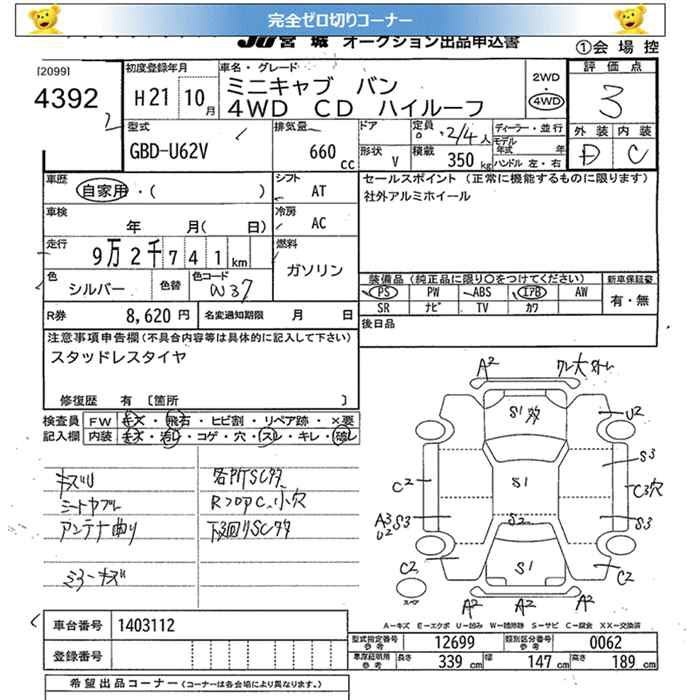 完全ゼロ切りコーナー
JU宮城 オークション出品申込書
①会場控
[2099]
4392
初度登録年月
H21 10月
車名・グレード
ミニキャブ バン
4WD CD ハイルーフ
2WD
・
4WD
評価点
3
外装 内装
D C
型式
GBD-U62V
排気量
660cc
ドア
形状 V
定員 2/4人
積載 350kg
ディーラー・並行
モデル年式 年
ハンドル 左・右
車歴
自家用・( )
シフト
AT
セールスポイント (正常に機能するものに限ります)
社外アルミホイール
車検
年 月( 日)
冷房
AC
走行
9万2千741km
燃料
ガソリン
色
シルバー
色替
色コード
W37
装備品 (純正品に限り○をつけてください)
PS PW ABS エアB AW
SR ナビ TV カワ
新車保証書
有・無
R券 8,620円
名変通知期限 月 日
後日品
注意事項申告欄 (不具合内容等は具体的に記入して下さい)
スタッドレスタイヤ
修復歴 有 [箇所 ]
検査員 FW キズ・飛石・ヒビ割・リペア跡・×要
記入欄 内装 キズ・汚れ・コゲ・穴・スレ・キレ・濡レ
キズU
シートヤブレ
アンテナ曲り
ミラーキズ
各所SC多
RフロアC、小穴
下廻りSC多
A2
S1多
U2
S3
C2
S1
C3穴
A3 S3
U2
S2
S3
C2
S1
C2
スペア
A2 A2 A2
A-キズ E-エクボ U-凹み W-補修跡 S-サビ C-腐食 XX-交換済
車台番号 1403112
登録番号
型式指定番号 参考 12699
類別区分番号 参考 0062
車庫証明用 参考 長さ 339cm 幅 147cm 高さ 189cm
希望出品コーナー (コーナーは各会場により異なります。)